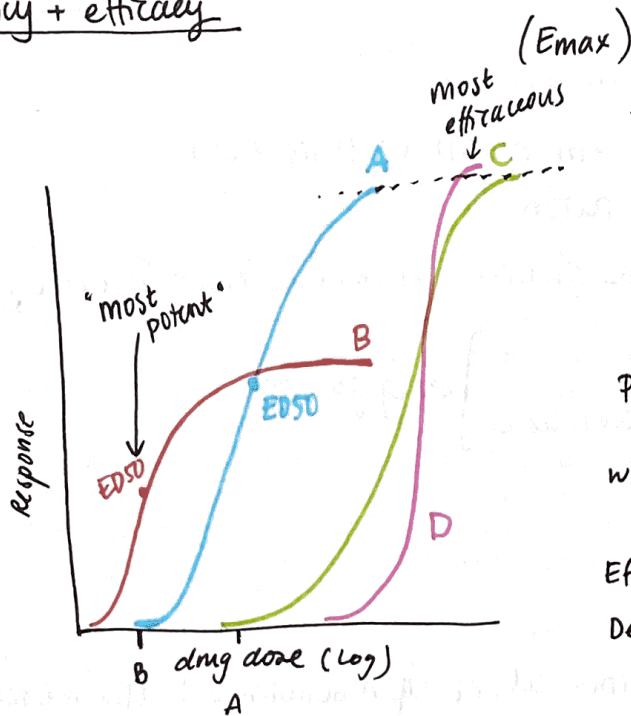 + efficacy
(Emax)
most
efficaceous
A
C
"most
potent"
B
ED50
ED50
Response
D
B
drug dose (Log)
A